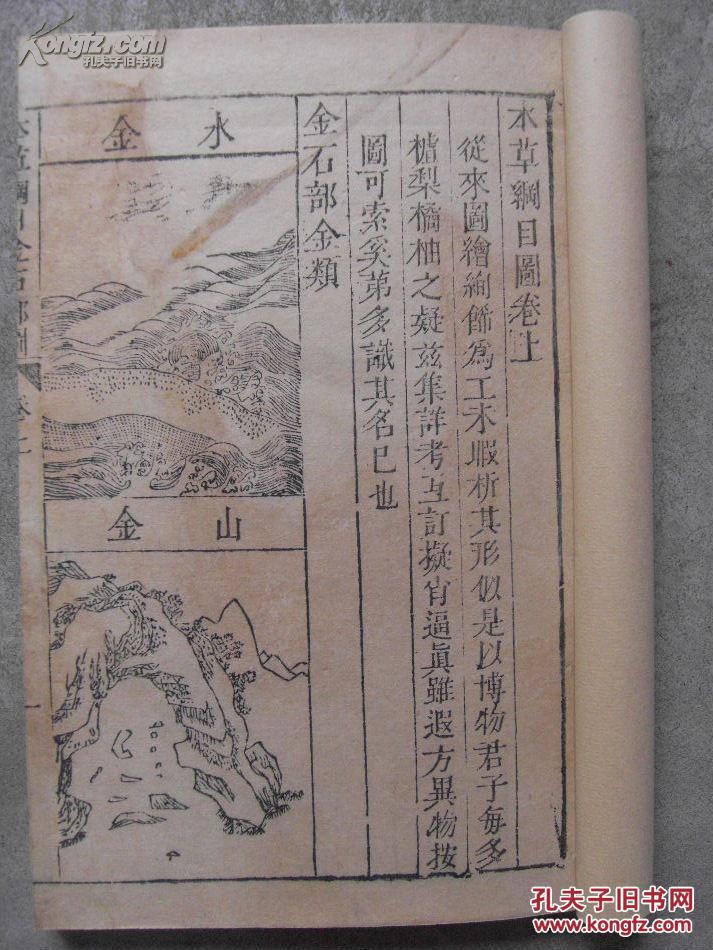 本草綱目圖卷上
從來圖繪絢飾爲工未暇析其形似是以博物君子每多
樝梨橘柚之疑茲集詳考互訂擬肖逼眞雖遐方異物按
圖可索奚第多識其名已也
金石部金類
水金
山金
本草綱目金石部圖 卷上
一
Kongfz.com
孔夫子旧书网
孔夫子旧书网
www.kongfz.com